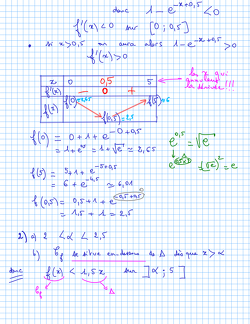 donc 1 - e^{-x+0,5} < 0
f'(x) < 0 sur [0 ; 0,5]
• si x > 0,5 on aura alors 1 - e^{-x+0,5} > 0
f'(x) > 0
x 0 0,5 5
f'(x) - 0 +
f(x) f(0) ≈ 2,65 f(0,5) = 2,5 f(5) ≈ 6
les x qui
!!!
f(0) = 0 + 1 + e^{-0+0,5}
= 1 + e^{0,5} = 1 + √e ≈ 2,65
e^{0,5} = √e
(√e)² = e
f(5) = 5 + 1 + e^{-5+0,5}
= 6 + e^{-4,5} ≈ 6,01
f(0,5) = 0,5 + 1 + e^{-0,5+0,5}
= 1,5 + 1 = 2,5
2) a) 2 < α < 2,5
b) 𝒞f se situe en dessous de Δ dès que x > α
donc f(x) < 1,5x sur ]α ; 5]
𝒞f Δ